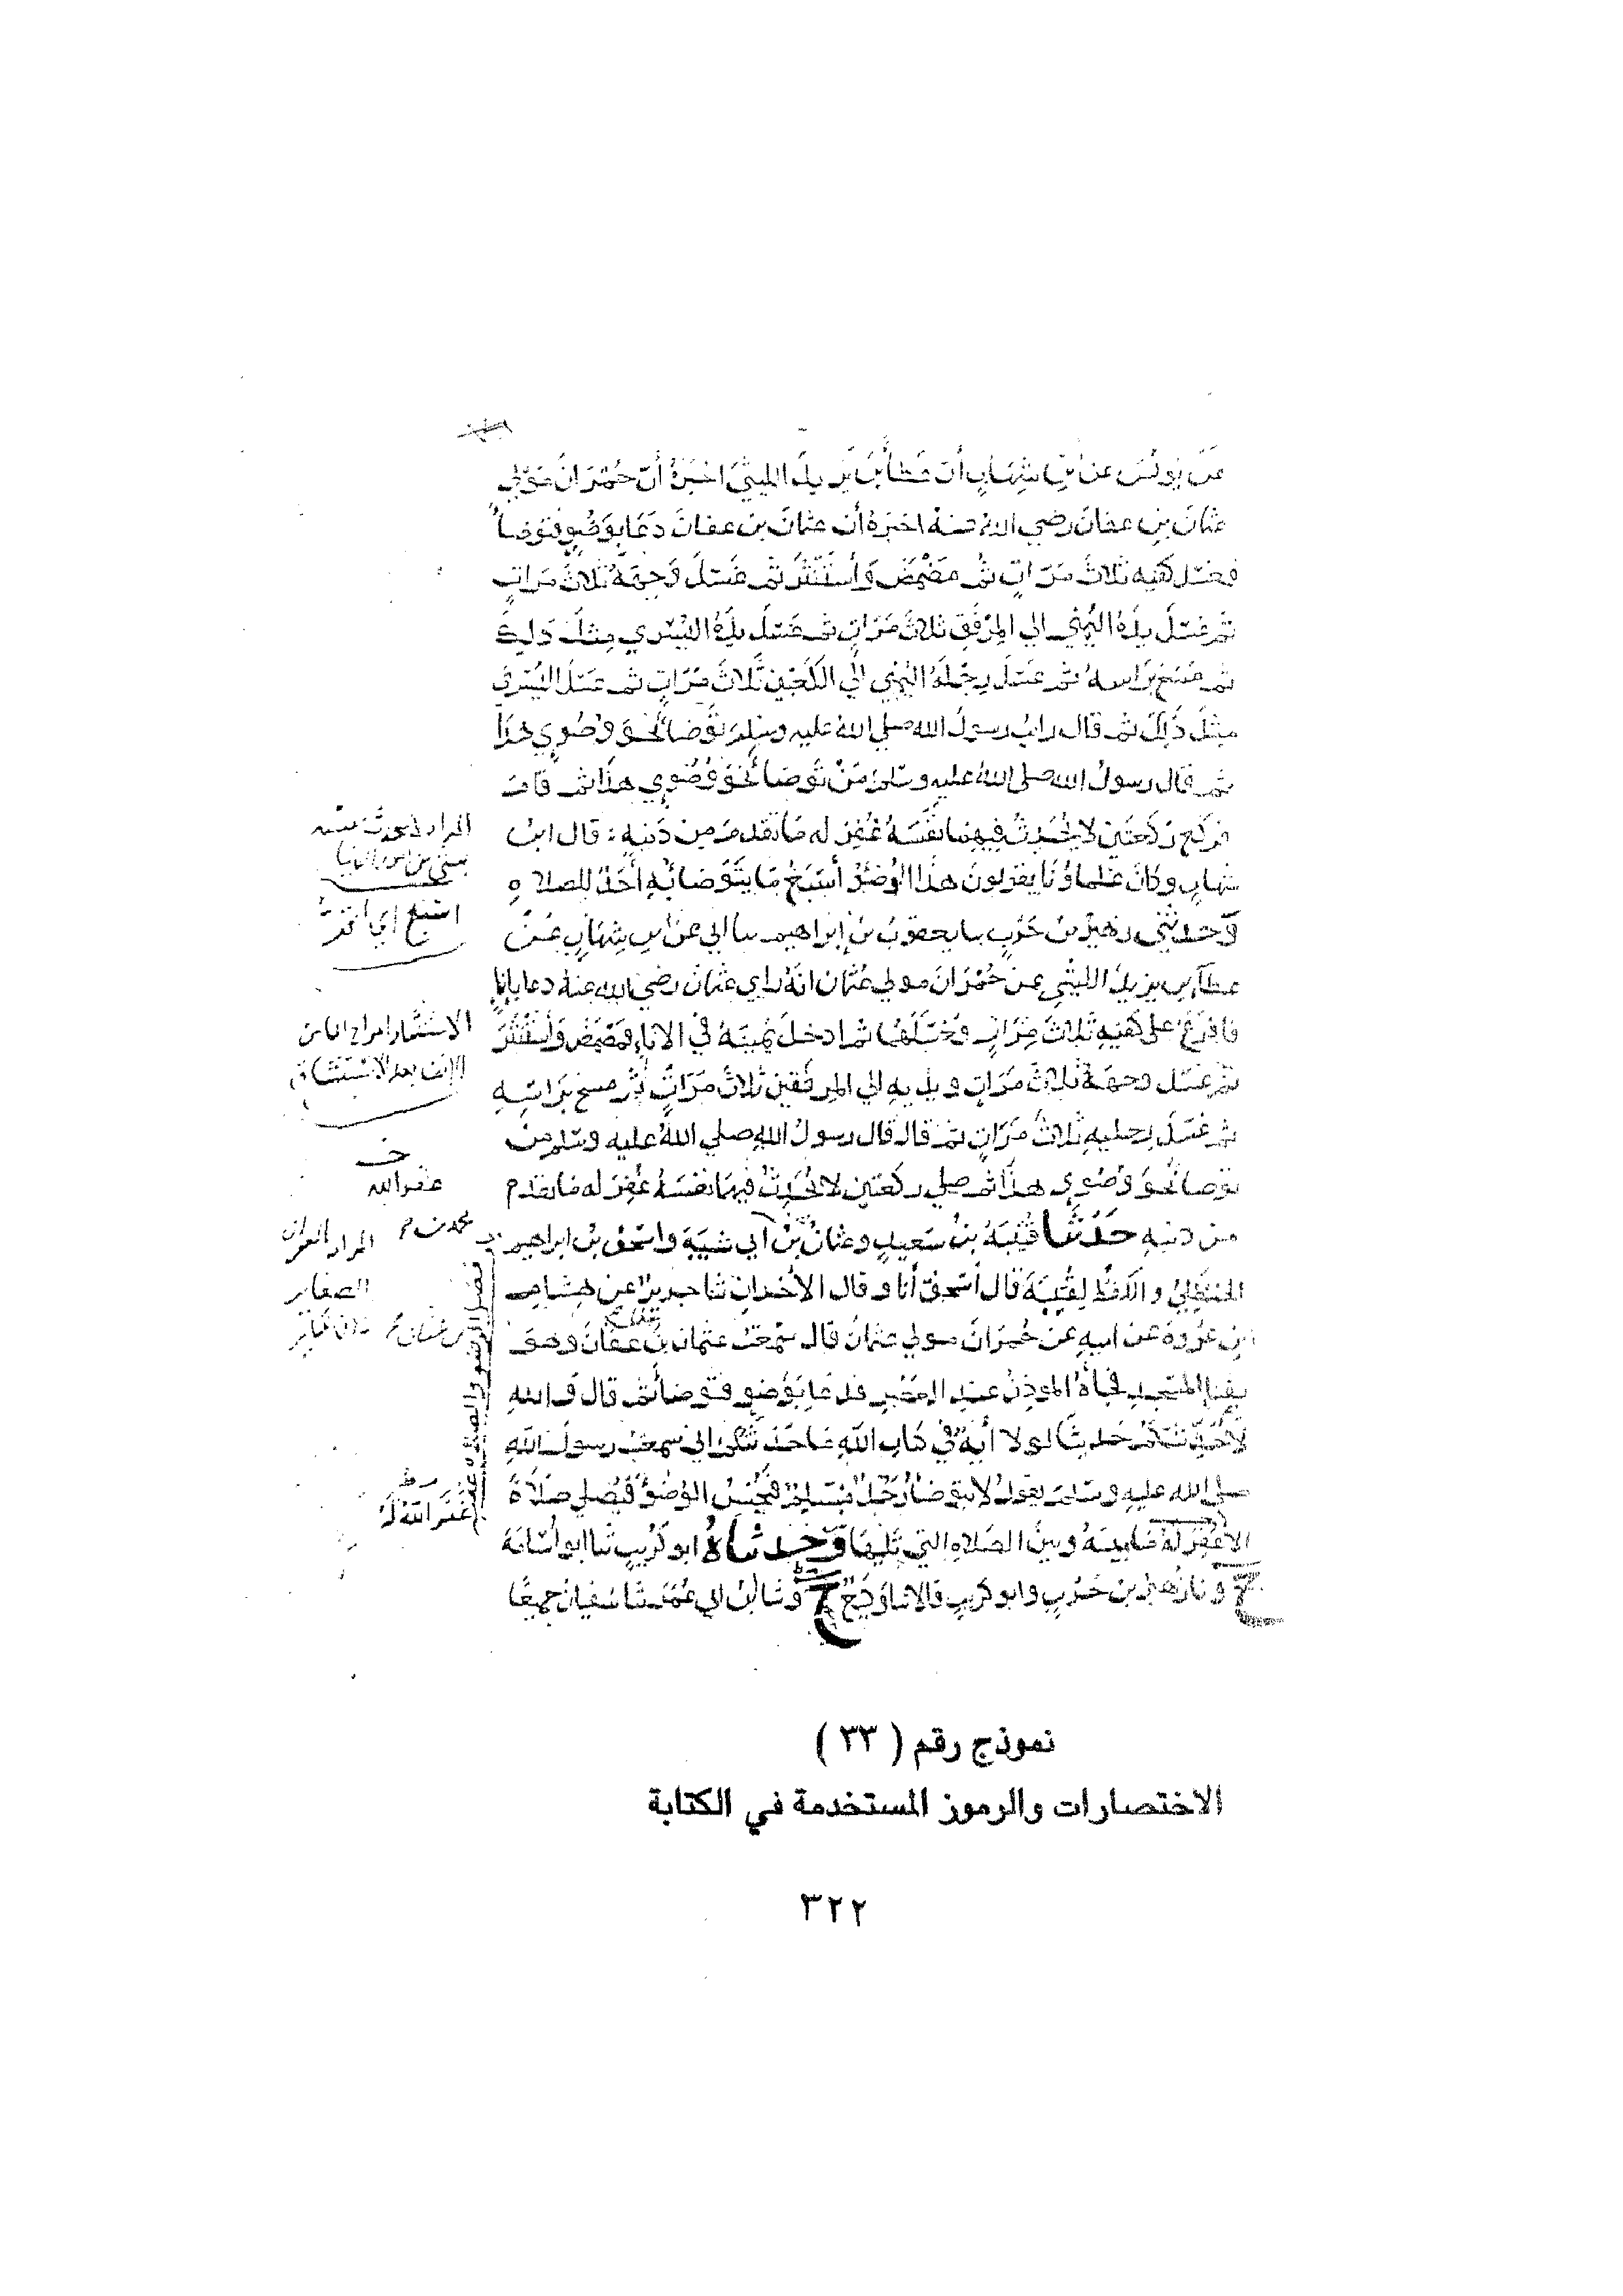 عن يونس عن ابن شهاب أن عطا بن يزيد الليثي اخبره أن حمران مولي
عثمان بن عفان رضي الله عنه اخبره أن عثمان بن عفان دعا بوضو فتوضأ
فغسل كفيه ثلاث مرات ثم مضمض واستنثر ثم غسل وجهه ثلاث مرات
ثم غسل يده اليمني الي المرفق ثلاث مرات ثم غسل يده اليسري مثل ذلك
ثم مسح براسه ثم غسل رجله اليمني الي الكعبين ثلاث مرات ثم غسل اليسري
مثل ذلك ثم قال رايت رسول الله صلي الله عليه وسلم توضا نحو وضوي هذا
ثم قال رسول الله صلي الله عليه وسلم من توضا نحو وضوي هذا ثم قام
فركع ركعتين لا يحدث فيهما نفسه غفر له ما تقدم من ذنبه : قال ابن
شهاب وكان علماونا يقولون هذا الوضو أسبغ ما يتوضا به أحد للصلاه
وحدثني زهير بن حرب سا يعقوب بن إبراهيم سا ابي عن ابن شهاب عن
عطا بن يزيد الليثي عن حمران مولي عثمان انه راي عثمان رضي الله عنه دعا بإنا
فافرغ علي كفيه ثلاث مرات فغسلهما ثم ادخل يمينه في الانا فمضمض واستنثر
ثم غسل وجهه ثلاث مرات ويديه الي المرفقين ثلاث مرات ثم مسح براسه
ثم غسل رجليه ثلاث مرات ثم قال قال رسول الله صلي الله عليه وسلم من
توضا نحو وضوي هذا ثم صلي ركعتين لا يحدث فيهما نفسه غفر له ما تقدم
من ذنبه حدثنا قتيبة بن سعيد وعثمان بن أبي شيبة واسحق بن ابراهيم
الحنظلي واللفظ لقتيبة قال أسحق أنا وقال الاخران ثنا جرير عن هشام
ابن عروة عن ابيه عن حمران مولي عثمان قال سمعت عثمان بن عفان وهو
بفنا المسجد فجاه الموذن عند العصر فدعا بوضو فتوضا ثم قال والله
لأحدثنكم حديثا لولا أية في كتاب الله ما حدثتكم اني سمعت رسول الله
صلي الله عليه وسلم يقول لا يتوضا رجل مسلم فيحسن الوضو فيصلي صلاة
الا غفر له ما بينه وبين الصلاه التي تليها وحدثناه ابو كريب ثنا ابو أسامة
ح وثنا زهير بن حرب وابو كريب قالا ثنا وكيع ح وثنا ابن ابي عمر ثنا سفيان جميعا
اسبغ اي اتم
الاستنثار اخراج الما من
الانف بعد الاستنشاق
خ
غفر الله
الصغاير
غفر الله له
نموذج رقم ( ٣٣ )
الاختصارات والرموز المستخدمة في الكتابة
٣٢٢